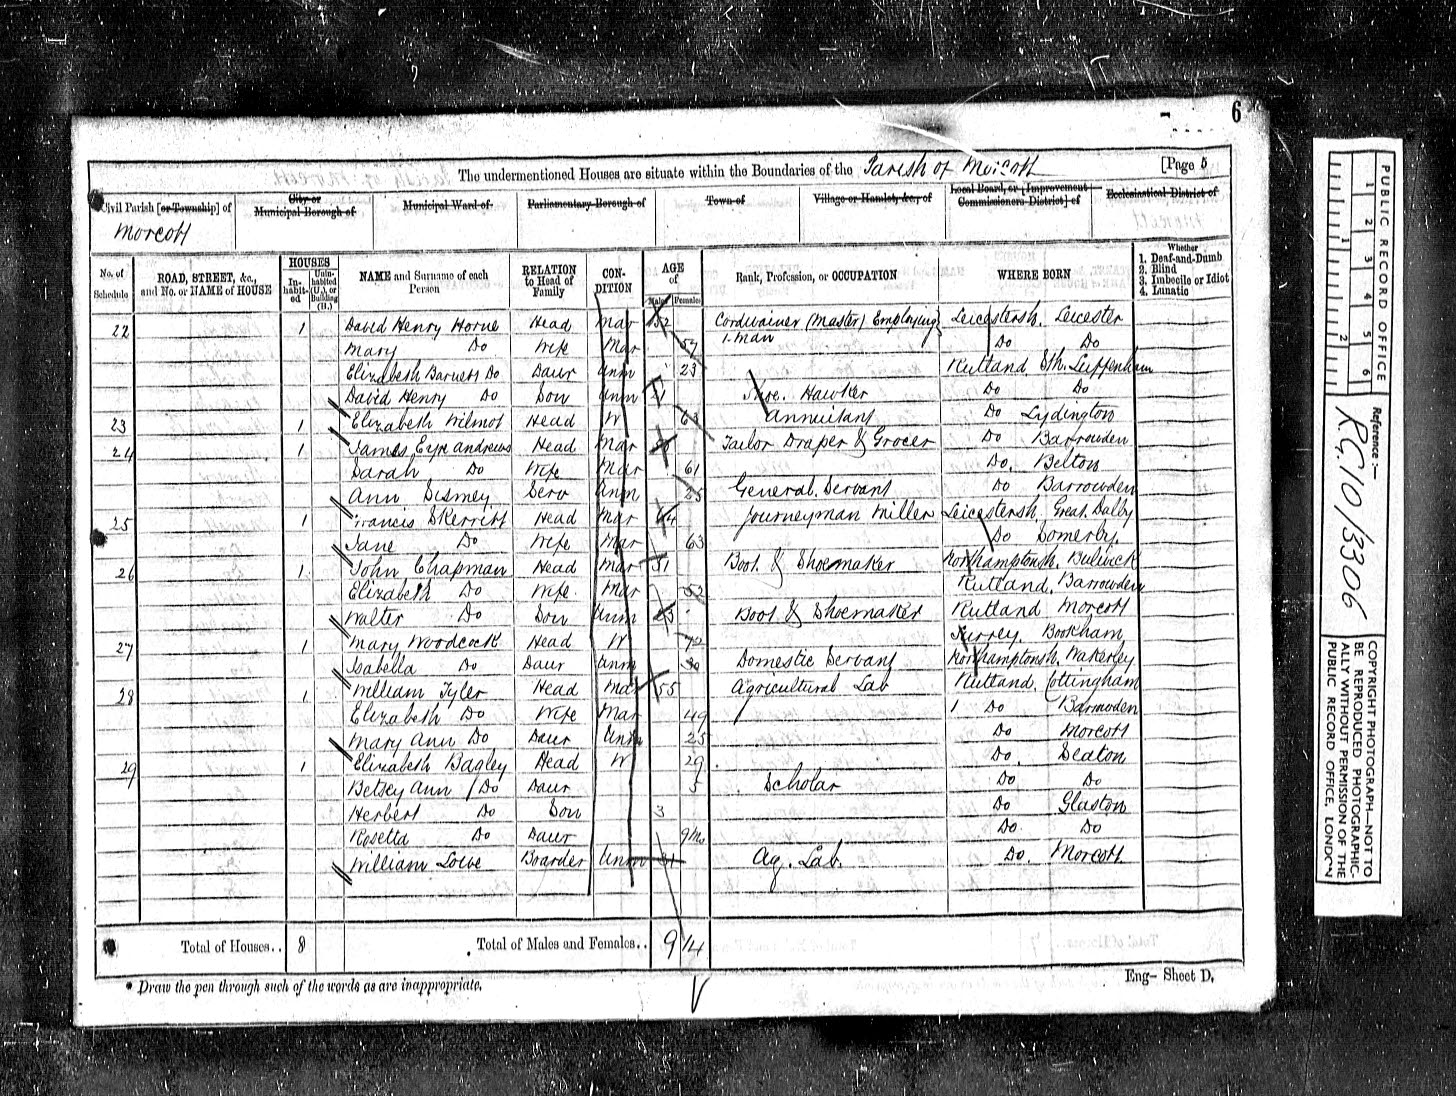 6
The undermentioned Houses are situate within the Boundaries of the Parish of Morcott [Page 5
Civil Parish [or Township] of Morcott
City or Municipal Borough of
Municipal Ward of
Parliamentary Borough of
Town of
Village or Hamlet, &c., of
Local Board, or [Improvement Commissioners District] of
Ecclesiastical District of
No. of Schedule
ROAD, STREET, &c., and No. or NAME of HOUSE
HOUSES
Inhabited
Uninhabited (U.), or Building (B.)
NAME and Surname of each Person
RELATION to Head of Family
CONDITION
AGE of
Males
Females
Rank, Profession, or OCCUPATION
WHERE BORN
Whether
1. Deaf-and-Dumb
2. Blind
3. Imbecile or Idiot
4. Lunatic
22 1 David Henry Horne Head Mar 52 Cordwainer (Master) Employing Leicestersh. Leicester
1 man
Mary Do Wife Mar 57 Do Do
Elizabeth Barnett Do Daur Unm 23 Rutland Sth. Luffenham
David Henry Do Son Unm Shoe. Hawker Do Do
23 1 Elizabeth Wilmot Head W 63 Annuitant Do Lydington
24 1 James Eyre Andrews Head Mar Tailor Draper & Grocer Do Barrowden
Sarah Do Wife Mar 61 Do. Belton
Ann Sismey Serv Unm 25 General Servant Do Barrowden
25 1 Francis Skerritt Head Mar 64 Journeyman Miller Leicestersh. Great Dalby
Jane Do Wife Mar 63 Do Somerby
26 1 John Chapman Head Mar 51 Boot & Shoemaker Northamptonsh. Bulwick
Elizabeth Do Wife Mar 52 Rutland. Barrowden
Walter Do Son Unm 23 Boot & Shoemaker Rutland Morcott
27 1 Mary Woodcock Head W 72 Surrey. Bookham
Isabella Do Daur Unm 30 Domestic Servant Northamptonsh. Wakerley
28 1 William Tyler Head Mar 55 Agricultural Lab Rutland. Cottingham
Elizabeth Do Wife Mar 49 Do Barrowden
Mary Ann Do Daur Unm 25 Do Morcott
29 1 Elizabeth Bagley Head W 29 Do. Seaton
Betsey Ann Do Daur 5 Scholar Do Do
Herbert Do Son 3 Do Glaston
Rosetta Do Daur 9/mo Do Do
William Love Boarder Unm Ag. Lab. Do. Morcott
Total of Houses.. 8
Total of Males and Females.. 9 14
* Draw the pen through such of the words as are inappropriate.
Eng– Sheet D.
PUBLIC RECORD OFFICE
1 2 3 4 5 6
1 2
Reference :—
RG.10/3306
COPYRIGHT PHOTOGRAPH—NOT TO
BE REPRODUCED PHOTOGRAPHIC-
ALLY WITHOUT PERMISSION OF THE
PUBLIC RECORD OFFICE, LONDON